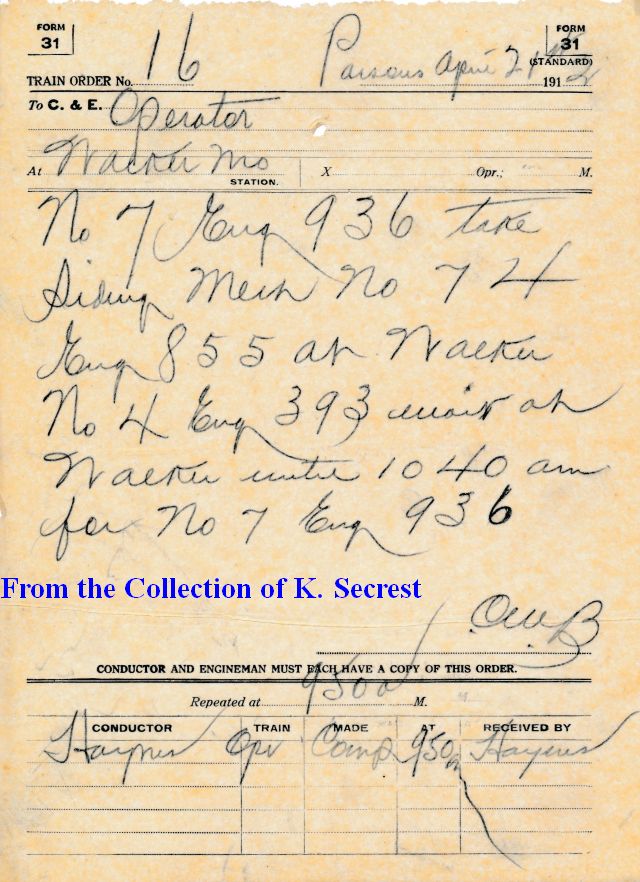 FORM 31
FORM 31
(STANDARD)
TRAIN ORDER No. 16 Parsons April 21st 191
To C. & E. Operator
At Walker Mo STATION. X Opr.; M.
No 7 Eng 936 take
Siding Meet No 74
Eng 855 at Walker
No 4 Eng 393 wait at
Walker until 1040 am
for No 7 Eng 936
From the Collection of K. Secrest
OWB
CONDUCTOR AND ENGINEMAN MUST EACH HAVE A COPY OF THIS ORDER.
Repeated at 950a M.
CONDUCTOR TRAIN MADE AT RECEIVED BY
Haynes Opr Comp 950a Haynes